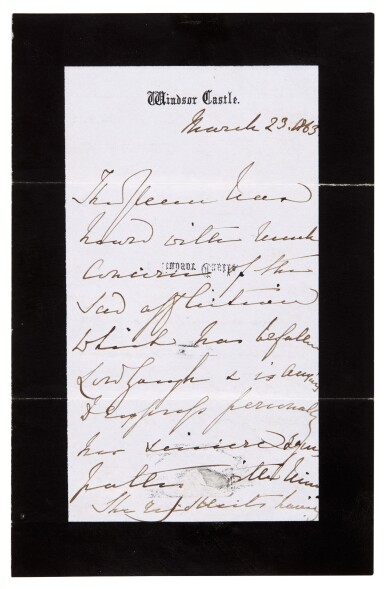 Windsor Castle.
March 23. 1863
The Queen has
heard with much
concern of the
sad affliction
which has befallen
Lord Gough & is anxious
to express personally
her sincere sym
pathy with him
The regrets having